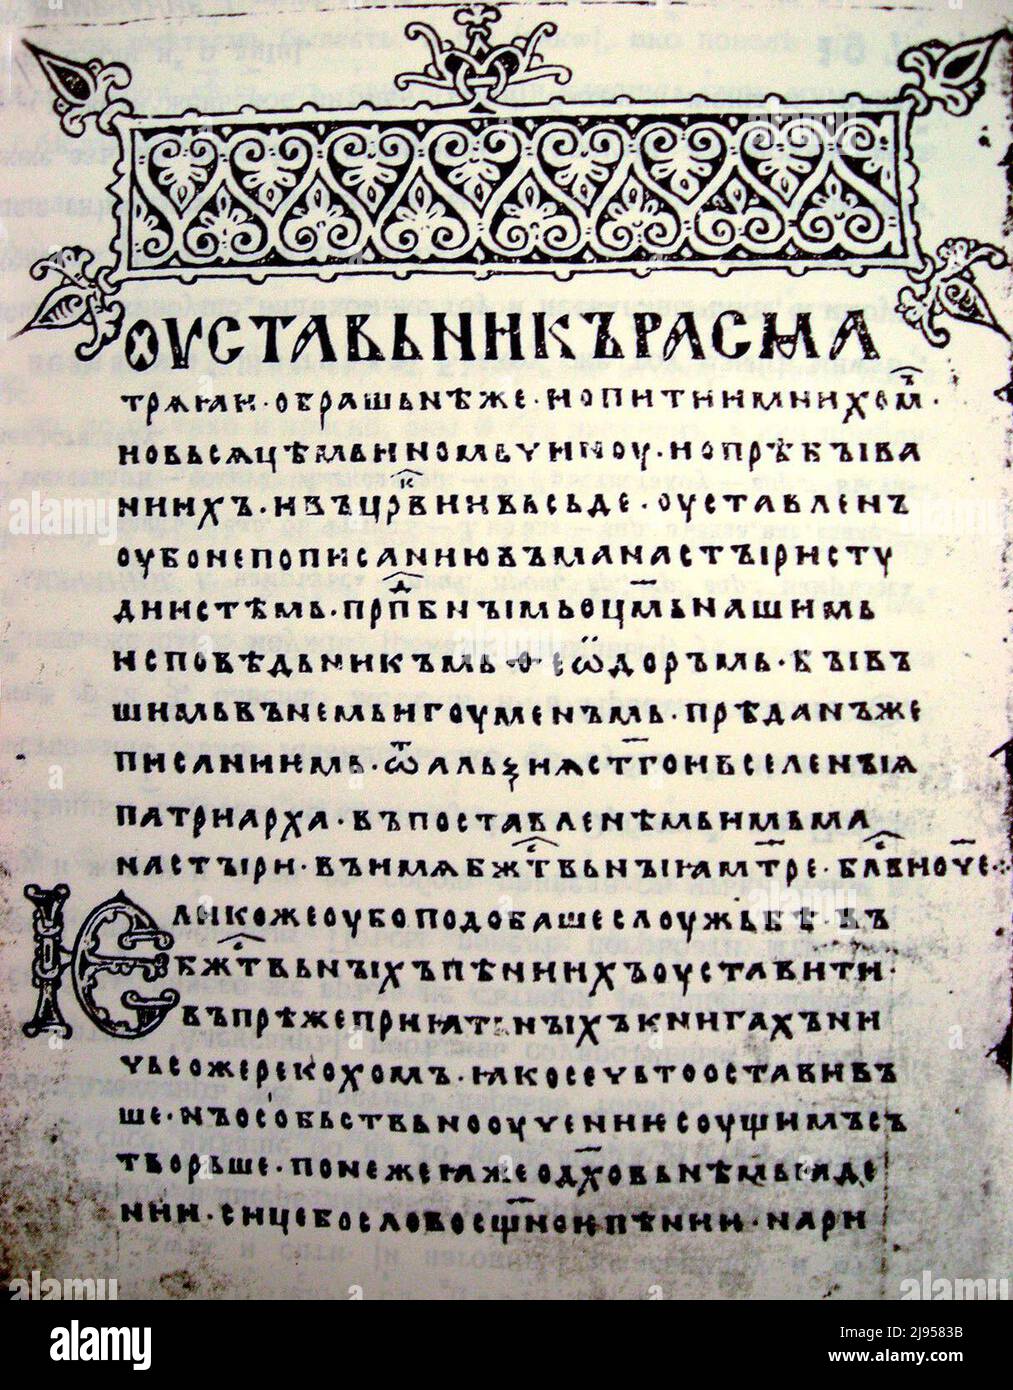 ОУСТАВЬНИКЪ РАСМА
ТРѦꙖИ · ОБРАШЬНѢЖЕ · И О ПИТИИ МНИХОМ̑Ъ ·
И О ВЬСѦЦѢМЬ ИНОМЬ ЧИНОУ · И О ПРѢБЫВА
НИИХЪ · И ВЪ ЦР҃КВИ И ВЬСЬДЕ · ОУСТАВЛЕНЪ
ОУБО НЕ ПО ПИСАНИЮ ВЪ МАНАСТЫРИ СТУ
ДИИСТѢМЬ · ПРП҃ДБНЫИМЬ ОЦ҃МЬ НАШИМЬ
ИСПОВѢДЬНИКЪМЬ ѲЕѠДОРЪМЬ · БЫВЪ
ШИМЬ ВЪ НЕМЬ ИГОУМЕНЪМЬ · ПРѢДАНЪ ЖЕ
ПИСАНИИМЬ · Ѿ АЛЬѮИѦ СТ҃ГО И ВСЕЛЕНЫІѦ
ПАТРИАРХА · ВЪ ПОСТАВЛЕНѢМЬ ИМЬ МА
НАСТЫРИ · ВЪ ИМѦ БЖ҃СТВЬНЫꙖ МТ҃РЕ · БЛ҃ВНОЧ҃Е ·:·
ѤЛИКОЖЕ ОУБО ПОДОБАШЕ СЛОУЖЬБѢ · ВЪ
БЖ҃СТВЬНЫХЪ ПѢНИИХЪ ОУСТАВИТИ ·
ВЪ ПРѢЖЕ ПРИꙖТ НЫХЪ КНИГАХЪ НИ
ЧЬСОЖЕ РЕКОХОМЪ · ꙖКО СЕ УЬТО ОСТАВИВЪ
ШЕ · НЪ ОСОБЬСТВЬНО ОУЧЕНИЕ СОУЩИМЪ СЪ
ТВОРЬШЕ · ПОНЕЖЕ ꙖЖЕ О ДХ҃ОВЬНѢМЬ ꙖДЕ
НИИ · СИЦЕ БО СЛОВО СЩ҃НОИ ПѢНИИ · НАРИ
alamy
Image ID: 2J9583B
www.alamy.com